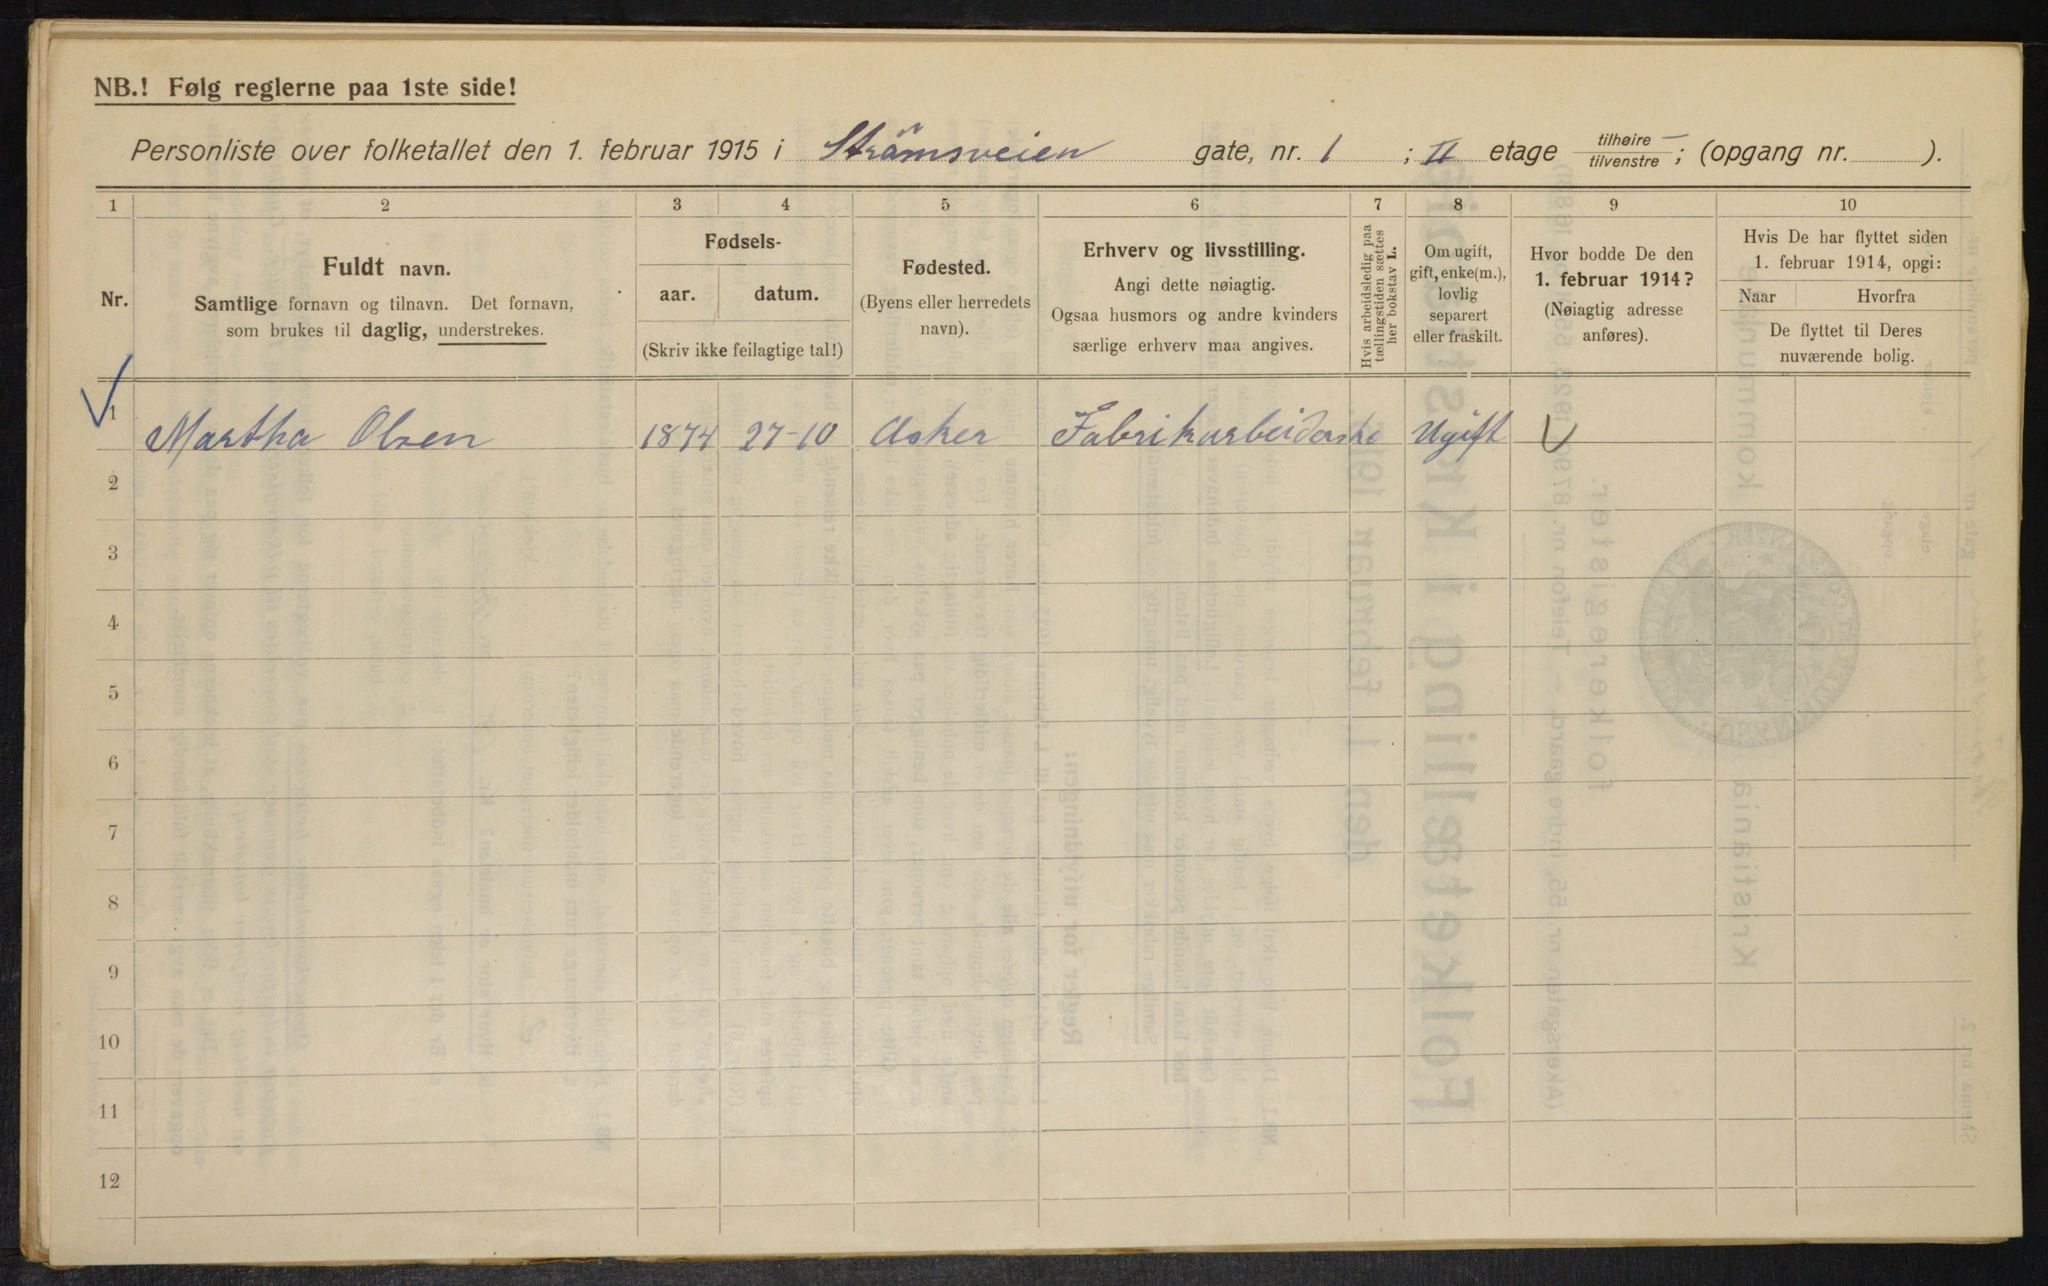 NB.! Følg reglerne paa 1ste side!
Personliste over folketallet den 1. februar 1915 i Strømsveien gate, nr. 1 ; II etage tilhøire / tilvenstre ; (opgang nr. ).
1 2 3 4 5 6 7 8 9 10
Nr.
Fuldt navn.
Samtlige fornavn og tilnavn. Det fornavn,
som brukes til daglig, understrekes.
Fødsels-
aar. datum.
(Skriv ikke feilagtige tal!)
Fødested.
(Byens eller herredets
navn).
Erhverv og livsstilling.
Angi dette nøiagtig.
Ogsaa husmors og andre kvinders
særlige erhverv maa angives.
Hvis arbeidsledig paa
tællingstiden sættes
her bokstav L.
Om ugift,
gift, enke(m.),
lovlig
separert
eller fraskilt.
Hvor bodde De den
1. februar 1914?
(Nøiagtig adresse
anføres).
Hvis De har flyttet siden
1. februar 1914, opgi:
Naar Hvorfra
De flyttet til Deres
nuværende bolig.
1 Martha Olsen 1874 27-10 Asker Fabrikarbeiderske Ugift
2
3
4
5
6
7
8
9
10
11
12